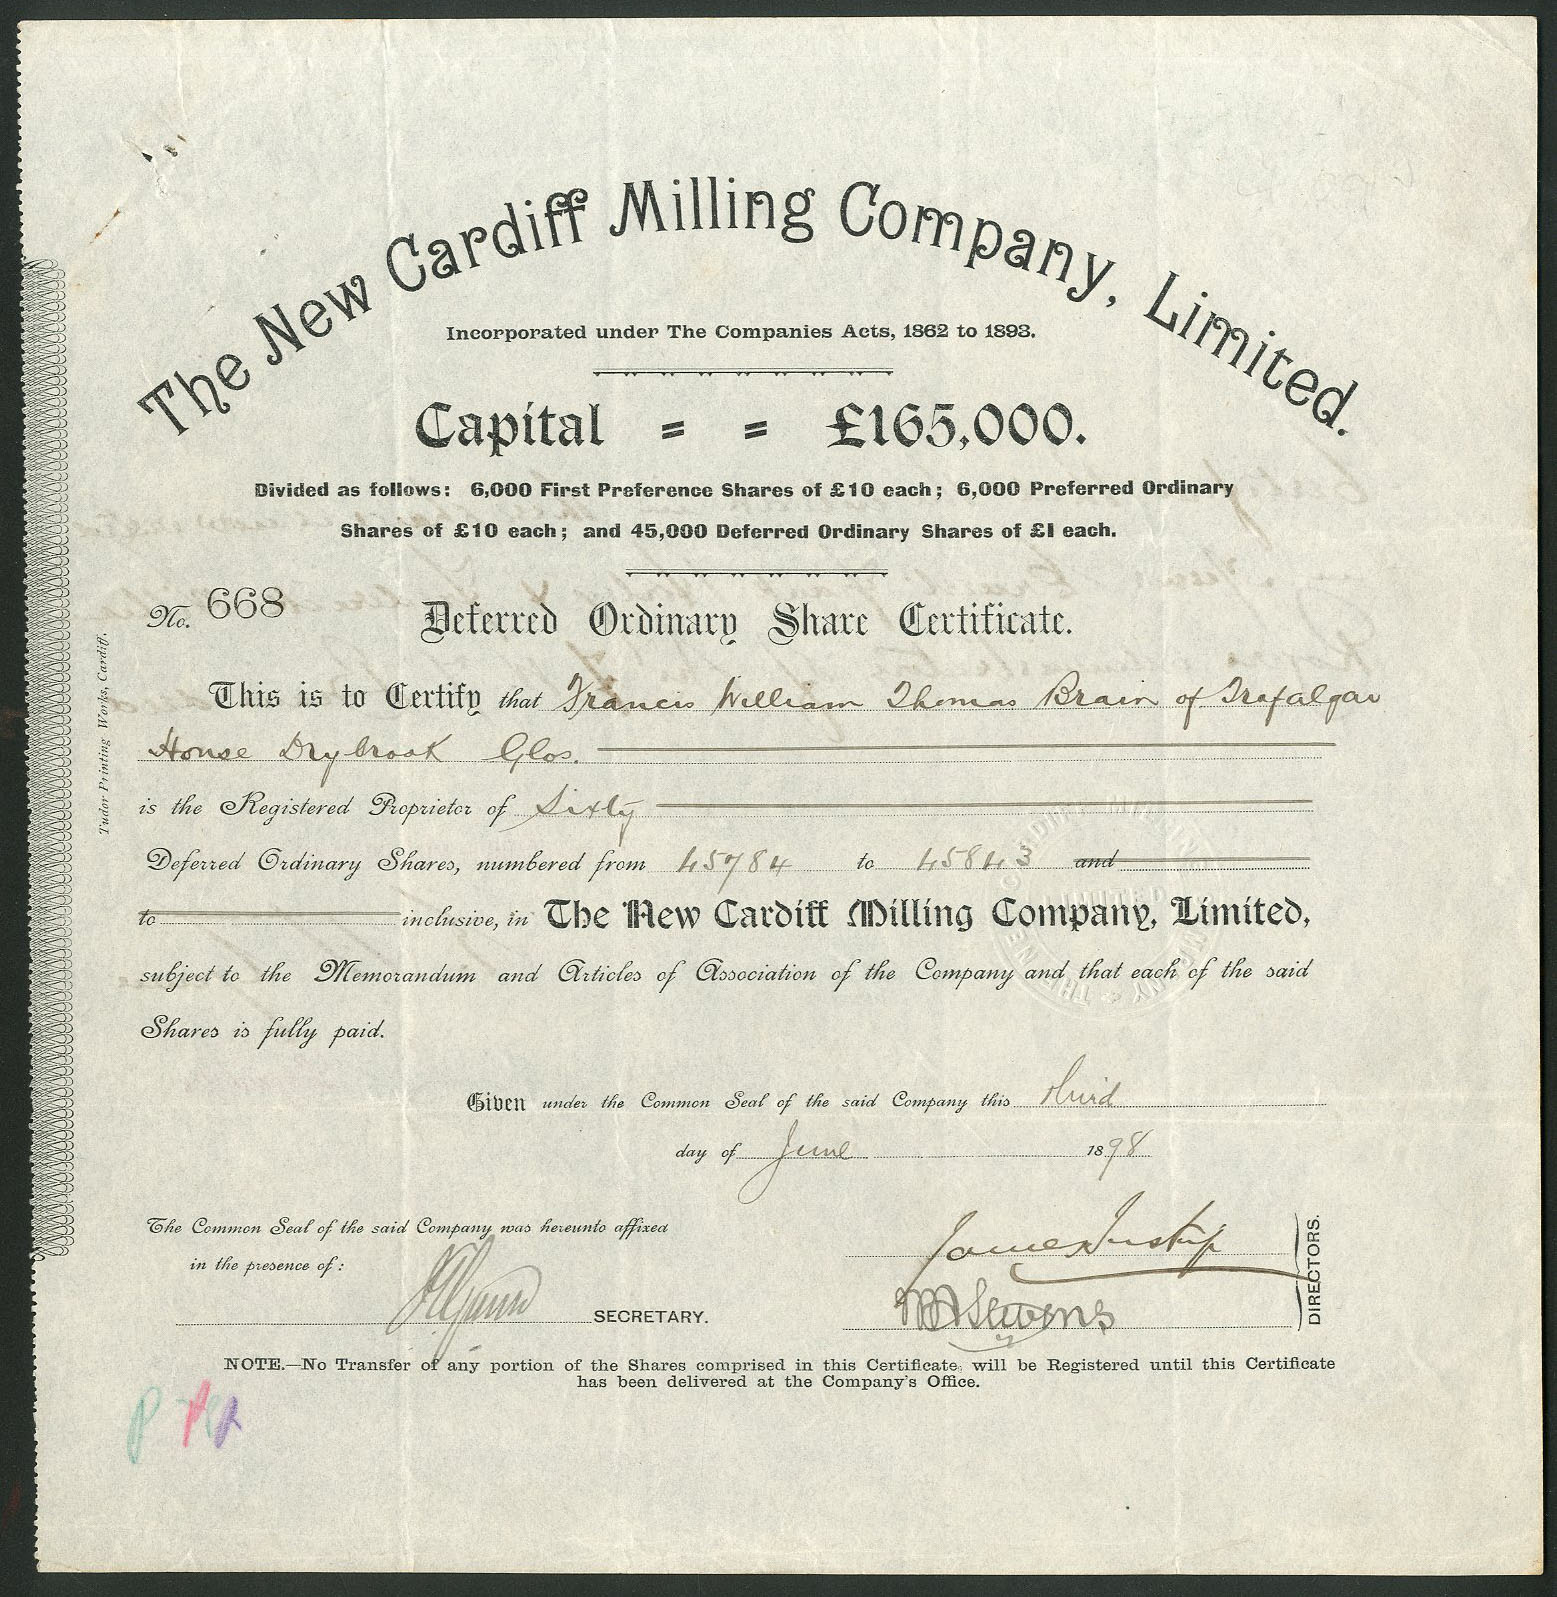 The New Cardiff Milling Company, Limited.
Incorporated under The Companies Acts, 1862 to 1893.
Capital = = £165,000.
Divided as follows: 6,000 First Preference Shares of £10 each; 6,000 Preferred Ordinary
Shares of £10 each; and 45,000 Deferred Ordinary Shares of £1 each.
No. 668 Deferred Ordinary Share Certificate.
This is to Certify that Francis William Thomas Brain of Trafalgar
House Drybrook Glos.
is the Registered Proprietor of Sixty
Deferred Ordinary Shares, numbered from 45784 to 45843 and
to inclusive, in The New Cardiff Milling Company, Limited,
subject to the Memorandum and Articles of Association of the Company and that each of the said
Shares is fully paid.
Given under the Common Seal of the said Company this third
day of June 1898
The Common Seal of the said Company was hereunto affixed
in the presence of:
James Inskip
SECRETARY.
DIRECTORS.
NOTE.—No Transfer of any portion of the Shares comprised in this Certificate, will be Registered until this Certificate
has been delivered at the Company's Office.
Tudor Printing Works, Cardiff.